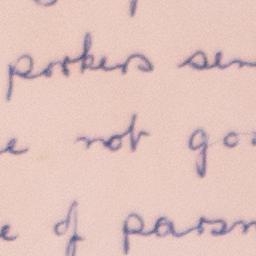 porkers sen
e not go
e of parsn